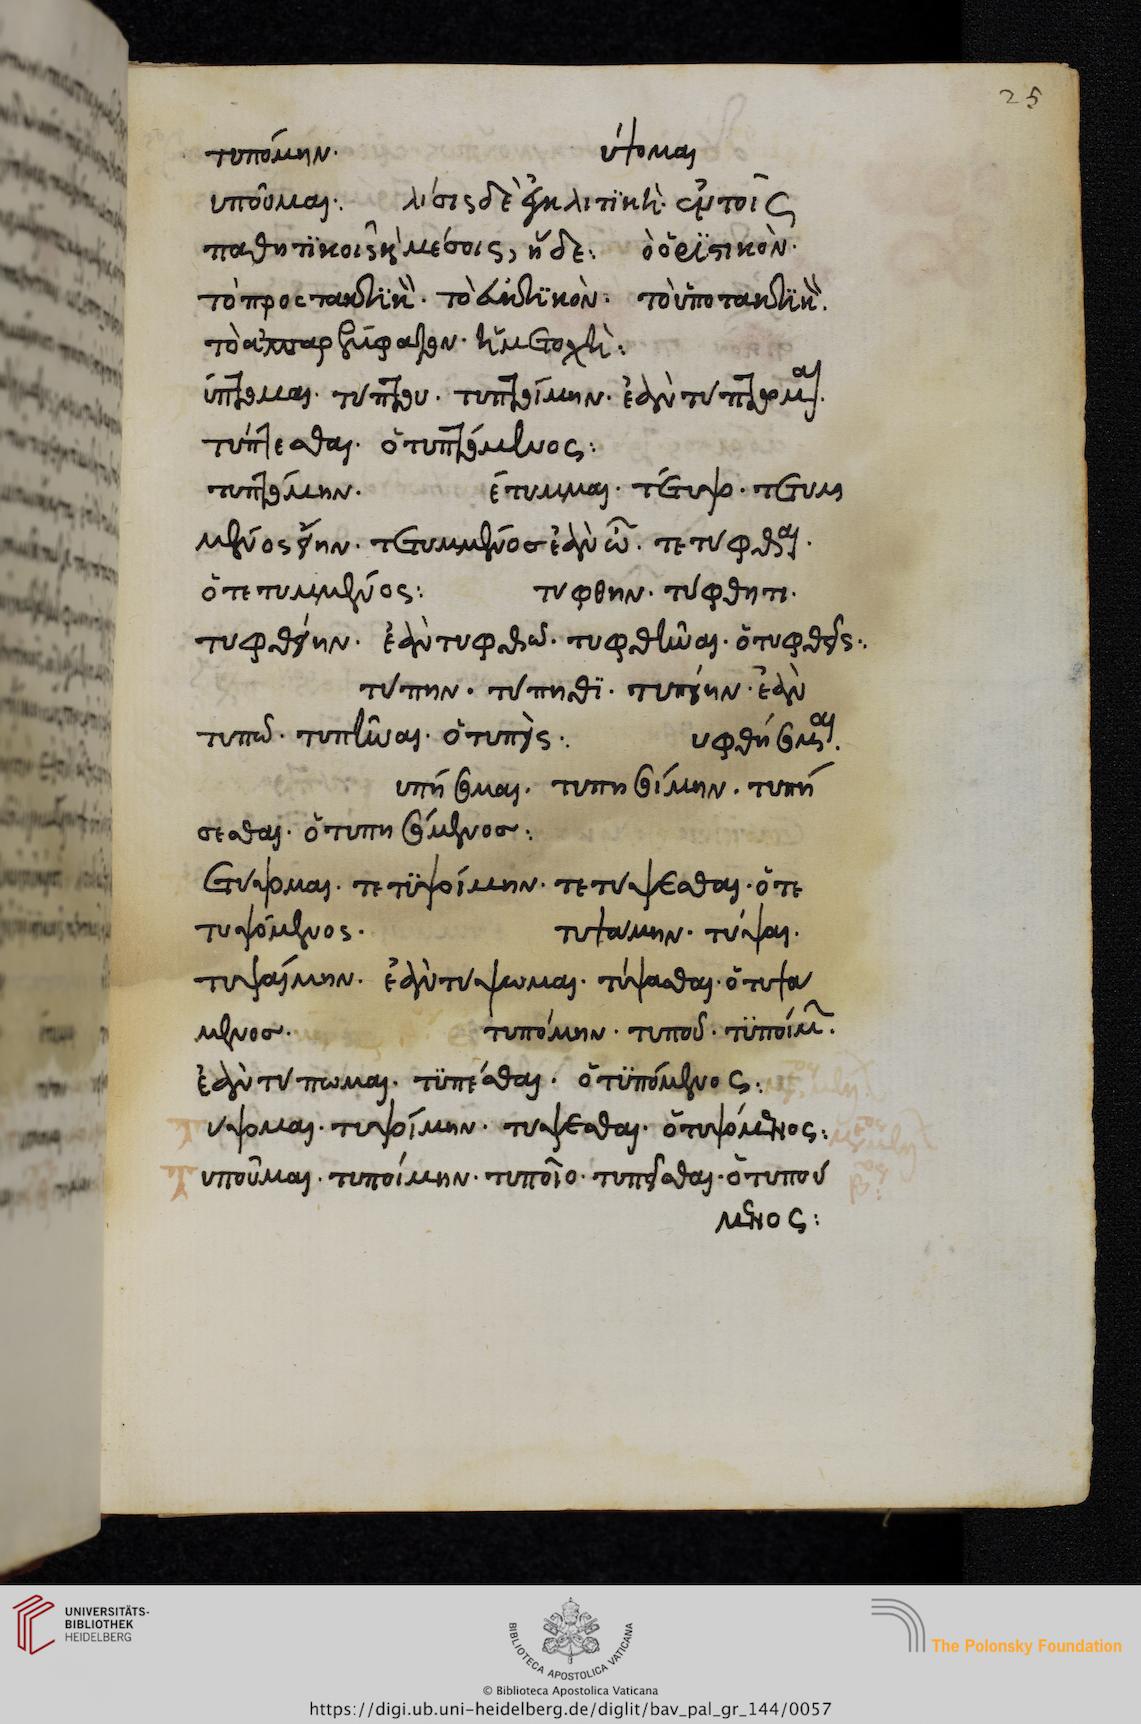 25
τυπόμην· ύψομαι
υποῦμαι·. λίσις δὲ ἐγκλιτϊκὴ· ἐν τοῖς
παθητϊκοις κ̀ μέσοις, ἥδε: ὁ ὁρϊστικὸν·
τὸ προστακτϊκὸν· τὸ εὐκτϊκὸν· τὸ ὑποτακτϊκὸν·
τὸ ἀπαρέμφατον· ἡ μετοχὴ:
ύπτομαι· τύπτου· τυπτοίμην· ἐὰν τύπτωμαι·
τύπτεσθαι· ὁ τυπτόμενος:
τυπτόμην· έτυμμαι· τέτυψο· τετυμ
μένος είην· τετυμμένοσ ἐὰν ὦ· τετυφθαι·
ὁ τετυμμένος: τυφθην· τύφθητι·
τυφθείην· ἐὰν τυφθω· τυφθῆναι· ὁ τυφθείς:.
τύπην· τύπηθϊ· τυπείην· ἐὰν
τυπω· τυπῆναι· ὁ τυπείς:. υφθήσομαι·
υπήσομαι· τυπησοίμην· τυπή
σεσθαι· ὁ τυπησόμενοσ:
ετύψομαι· τετϋψοίμην· τετύψεσθαι· ὁ τε
τυψόμενος· τυψαμην· τύψαι·
τυψαίμην· ἐὰν τύψωμαι· τύψασθαι· ὁ τυψά
μενοσ· τυπόμην· τυποῦ· τϋποίμην·
ἐὰν τύπωμαι· τϋπέσθαι· ὁ τϋπόμενος:
τύψομαι· τυψοίμην· τύψεσθαι· ὁ τυψόμενος:
τυποῦμαι· τυποίμην· τυποῖο· τυπεῖσθαι· ὁ τυπού
μενος:
UNIVERSITÄTS-
BIBLIOTHEK
HEIDELBERG
BIBLIOTECA APOSTOLICA VATICANA
The Polonsky Foundation
© Biblioteca Apostolica Vaticana
https://digi.ub.uni-heidelberg.de/diglit/bav_pal_gr_144/0057